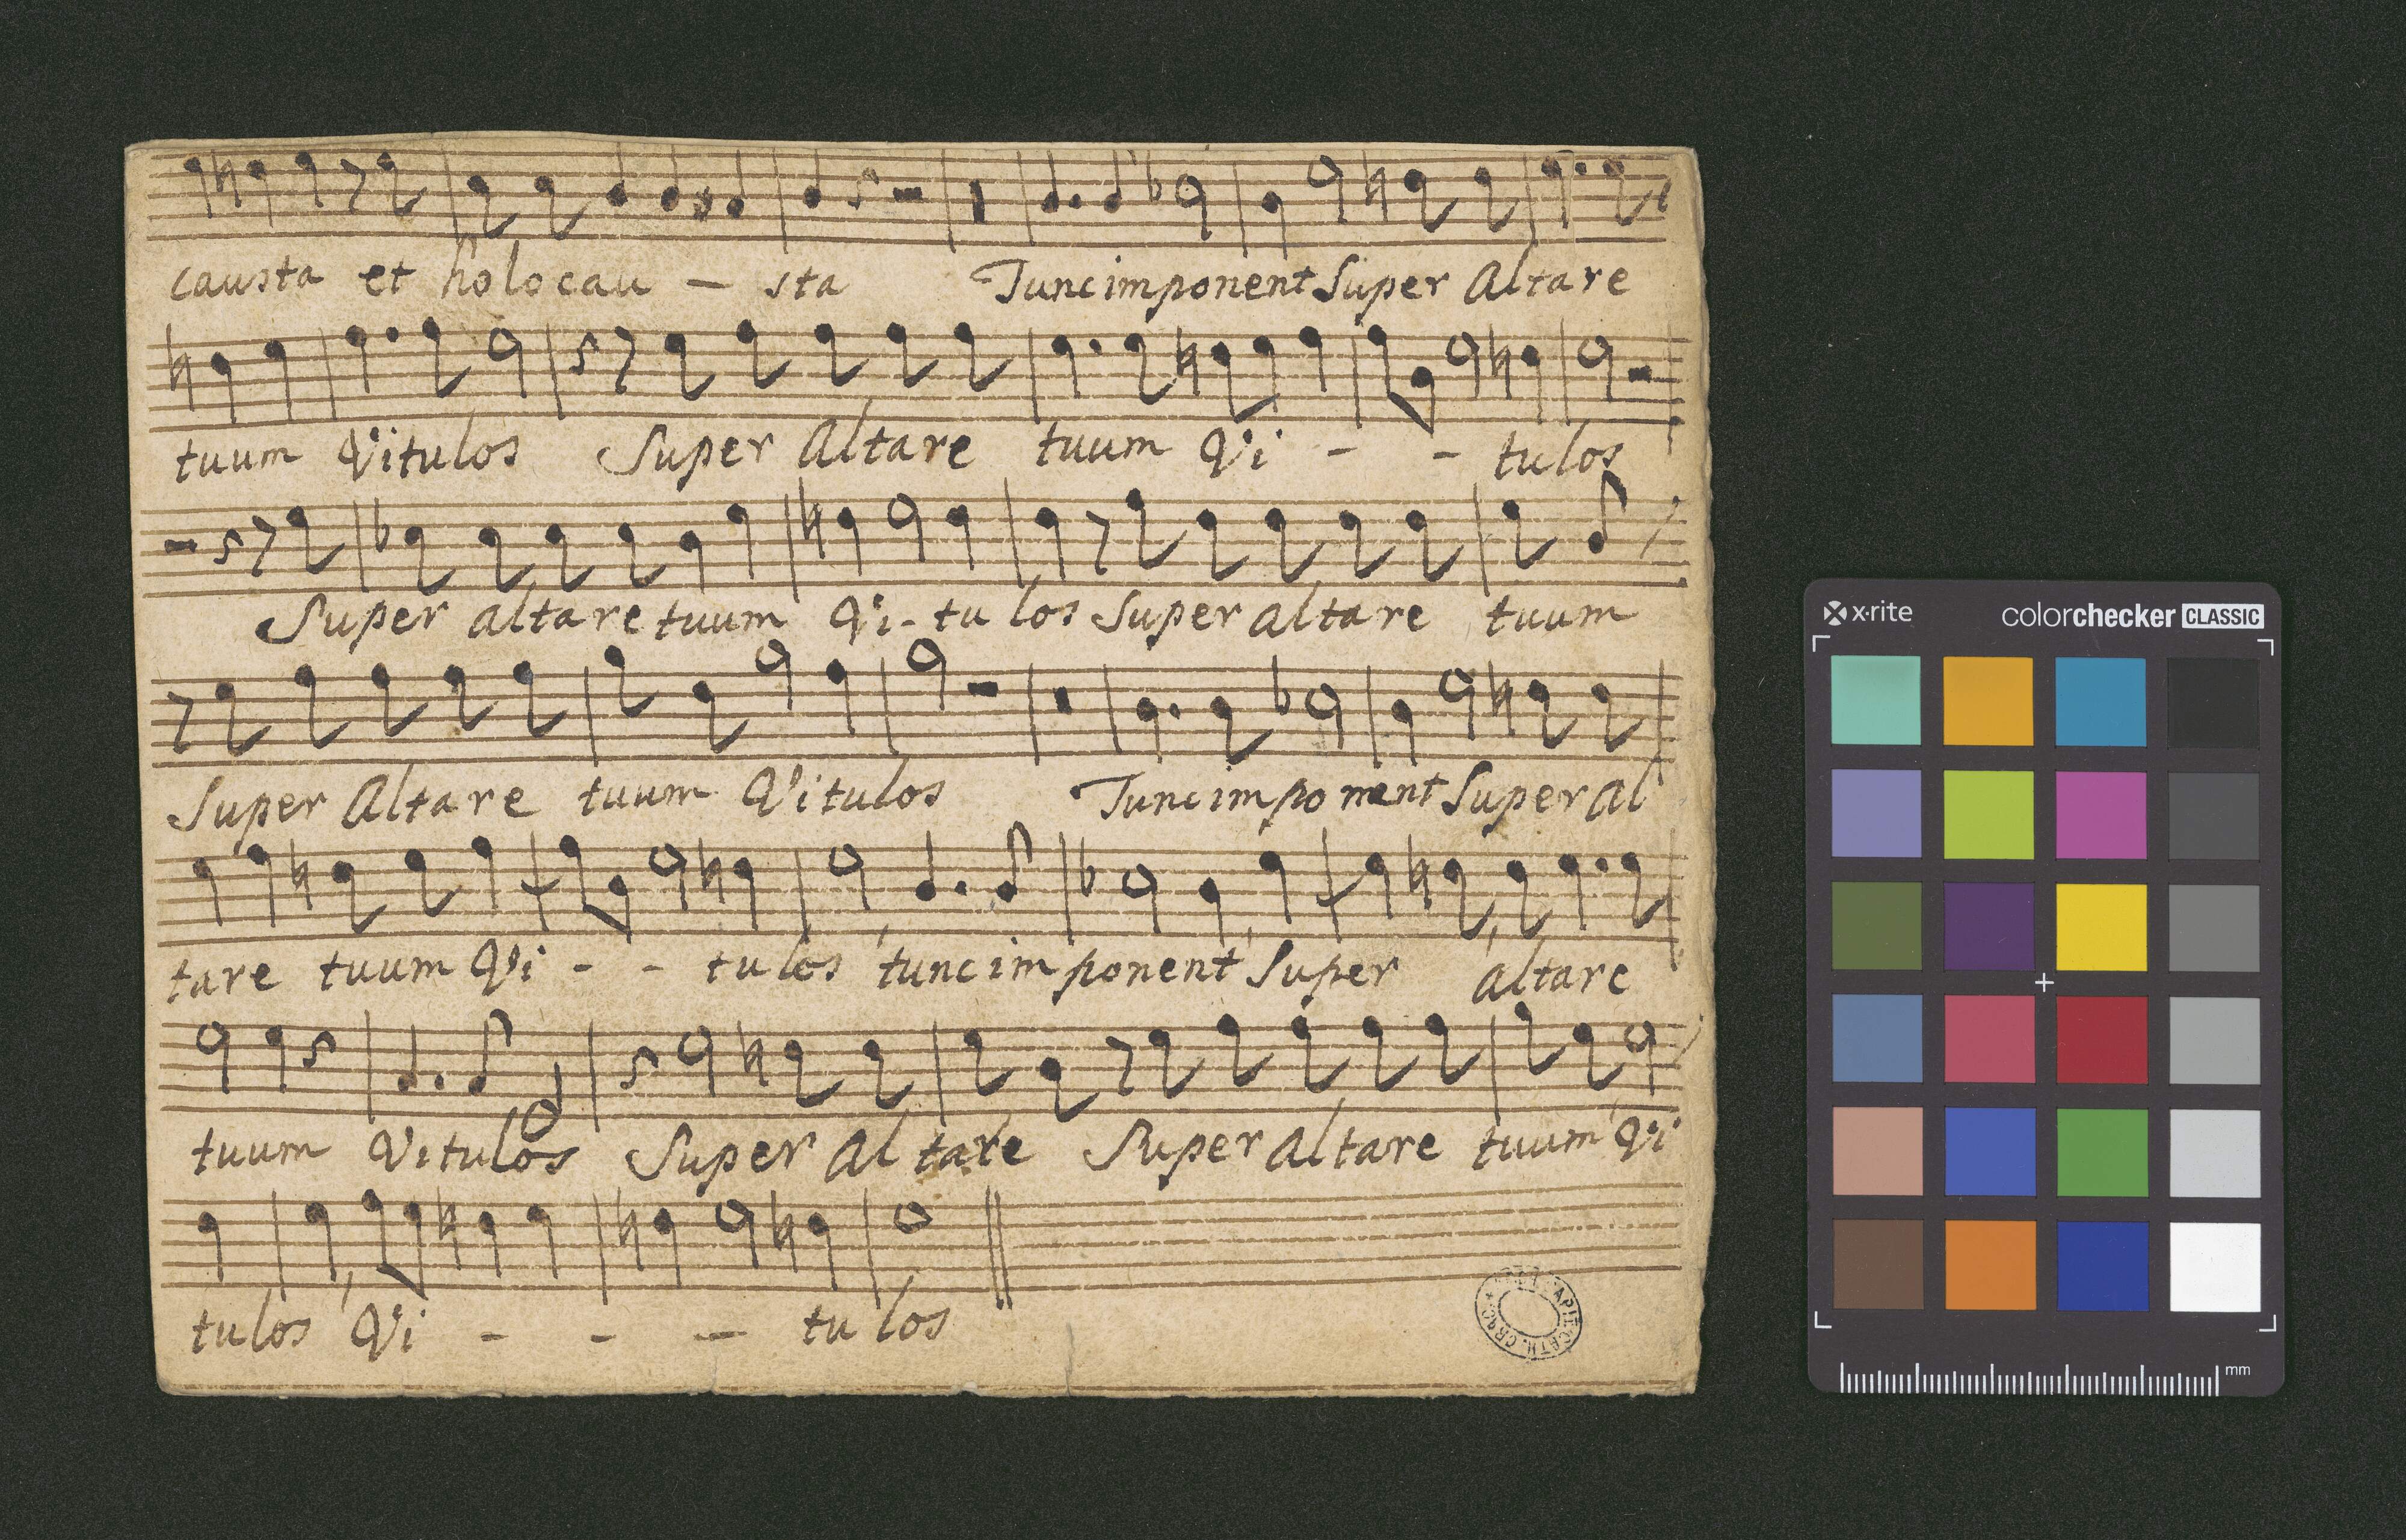 causta et holocau - sta Tunc imponent Super Altare
tuum Vitulos Super Altare tuum Vi - - tulos
Super altare tuum Vi - tu los Super altare tuum
Super Altare tuum Vitulos Tunc imponent Super Al
tare tuum Vi - - tu los tunc imponent Super altare
tuum Vitulos Super Al tare Super altare tuum Vi
tulos Vi - - - tu los
x·rite colorchecker CLASSIC
mm